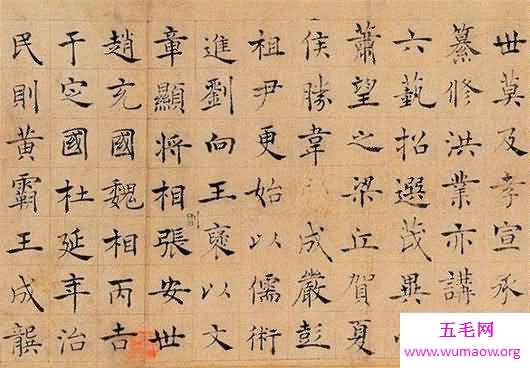 世莫及孝宣承
纂修洪業亦講
六藝招選茂異
蕭望之梁丘賀夏
侯勝韋成嚴彭
祖尹更始以儒術
進劉向王褒以文
章顯將相張安世
趙充國魏相丙吉
于定國杜延年治
民則黃霸王成龔
五毛网
www.wumaow.org